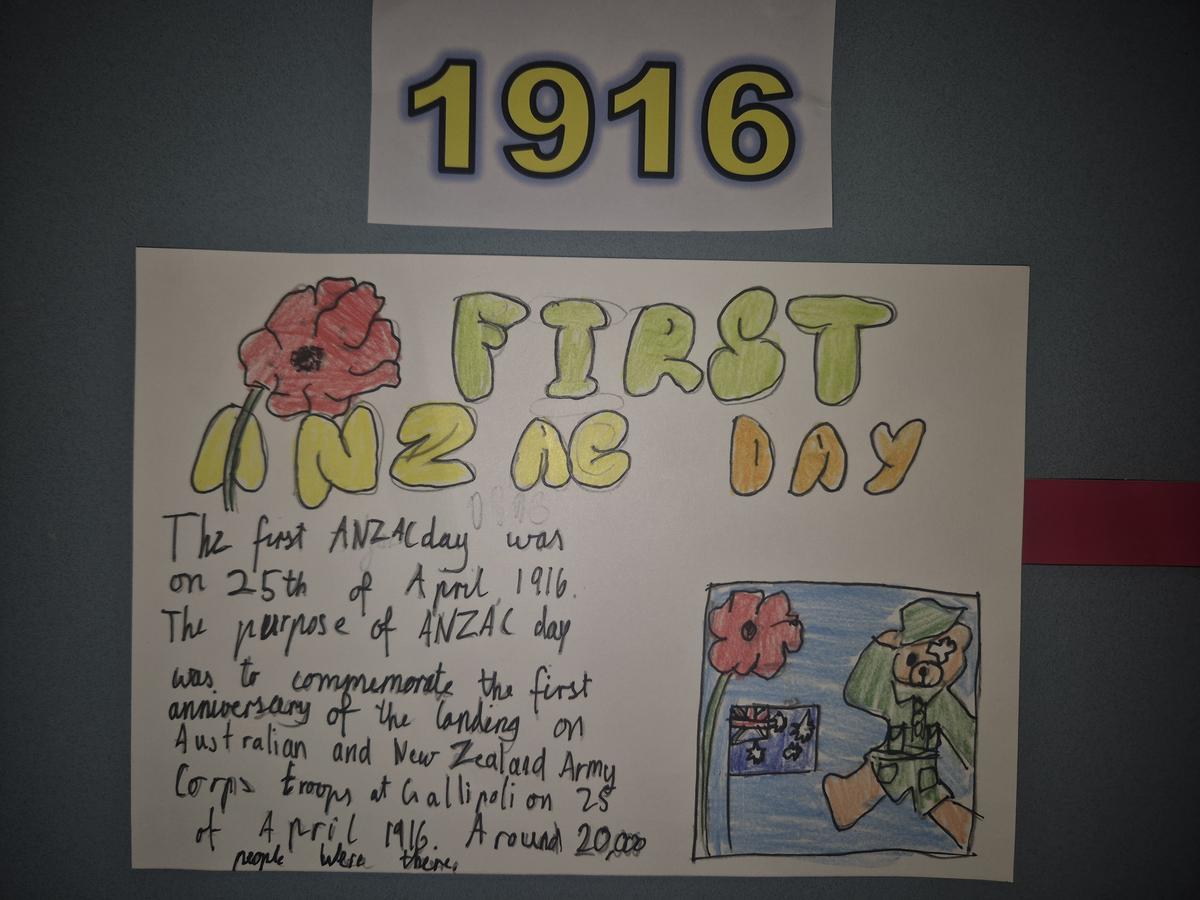 1916
FIRST
ANZAC DAY
The first ANZAC day was
on 25th of April 1916.
The purpose of ANZAC day
was to commemorate the first
anniversary of the landing on
Australian and New Zealand Army
Corps troops at Gallipoli on 25
of April 1916. Around 20,000
people were there.